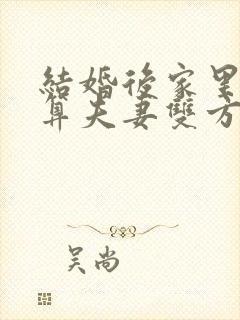 結婚後家里
算夫妻雙方
吴尚